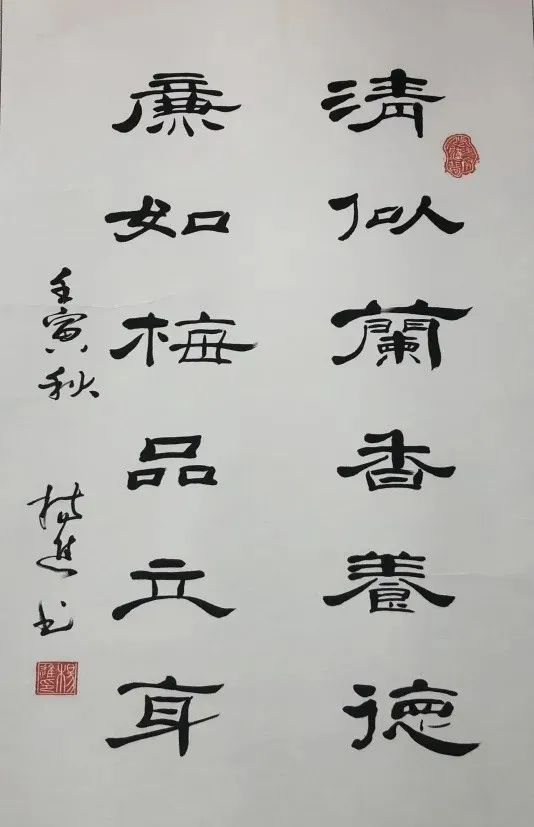 清似蘭香養德
廉如梅品立身
壬寅秋
楊進书